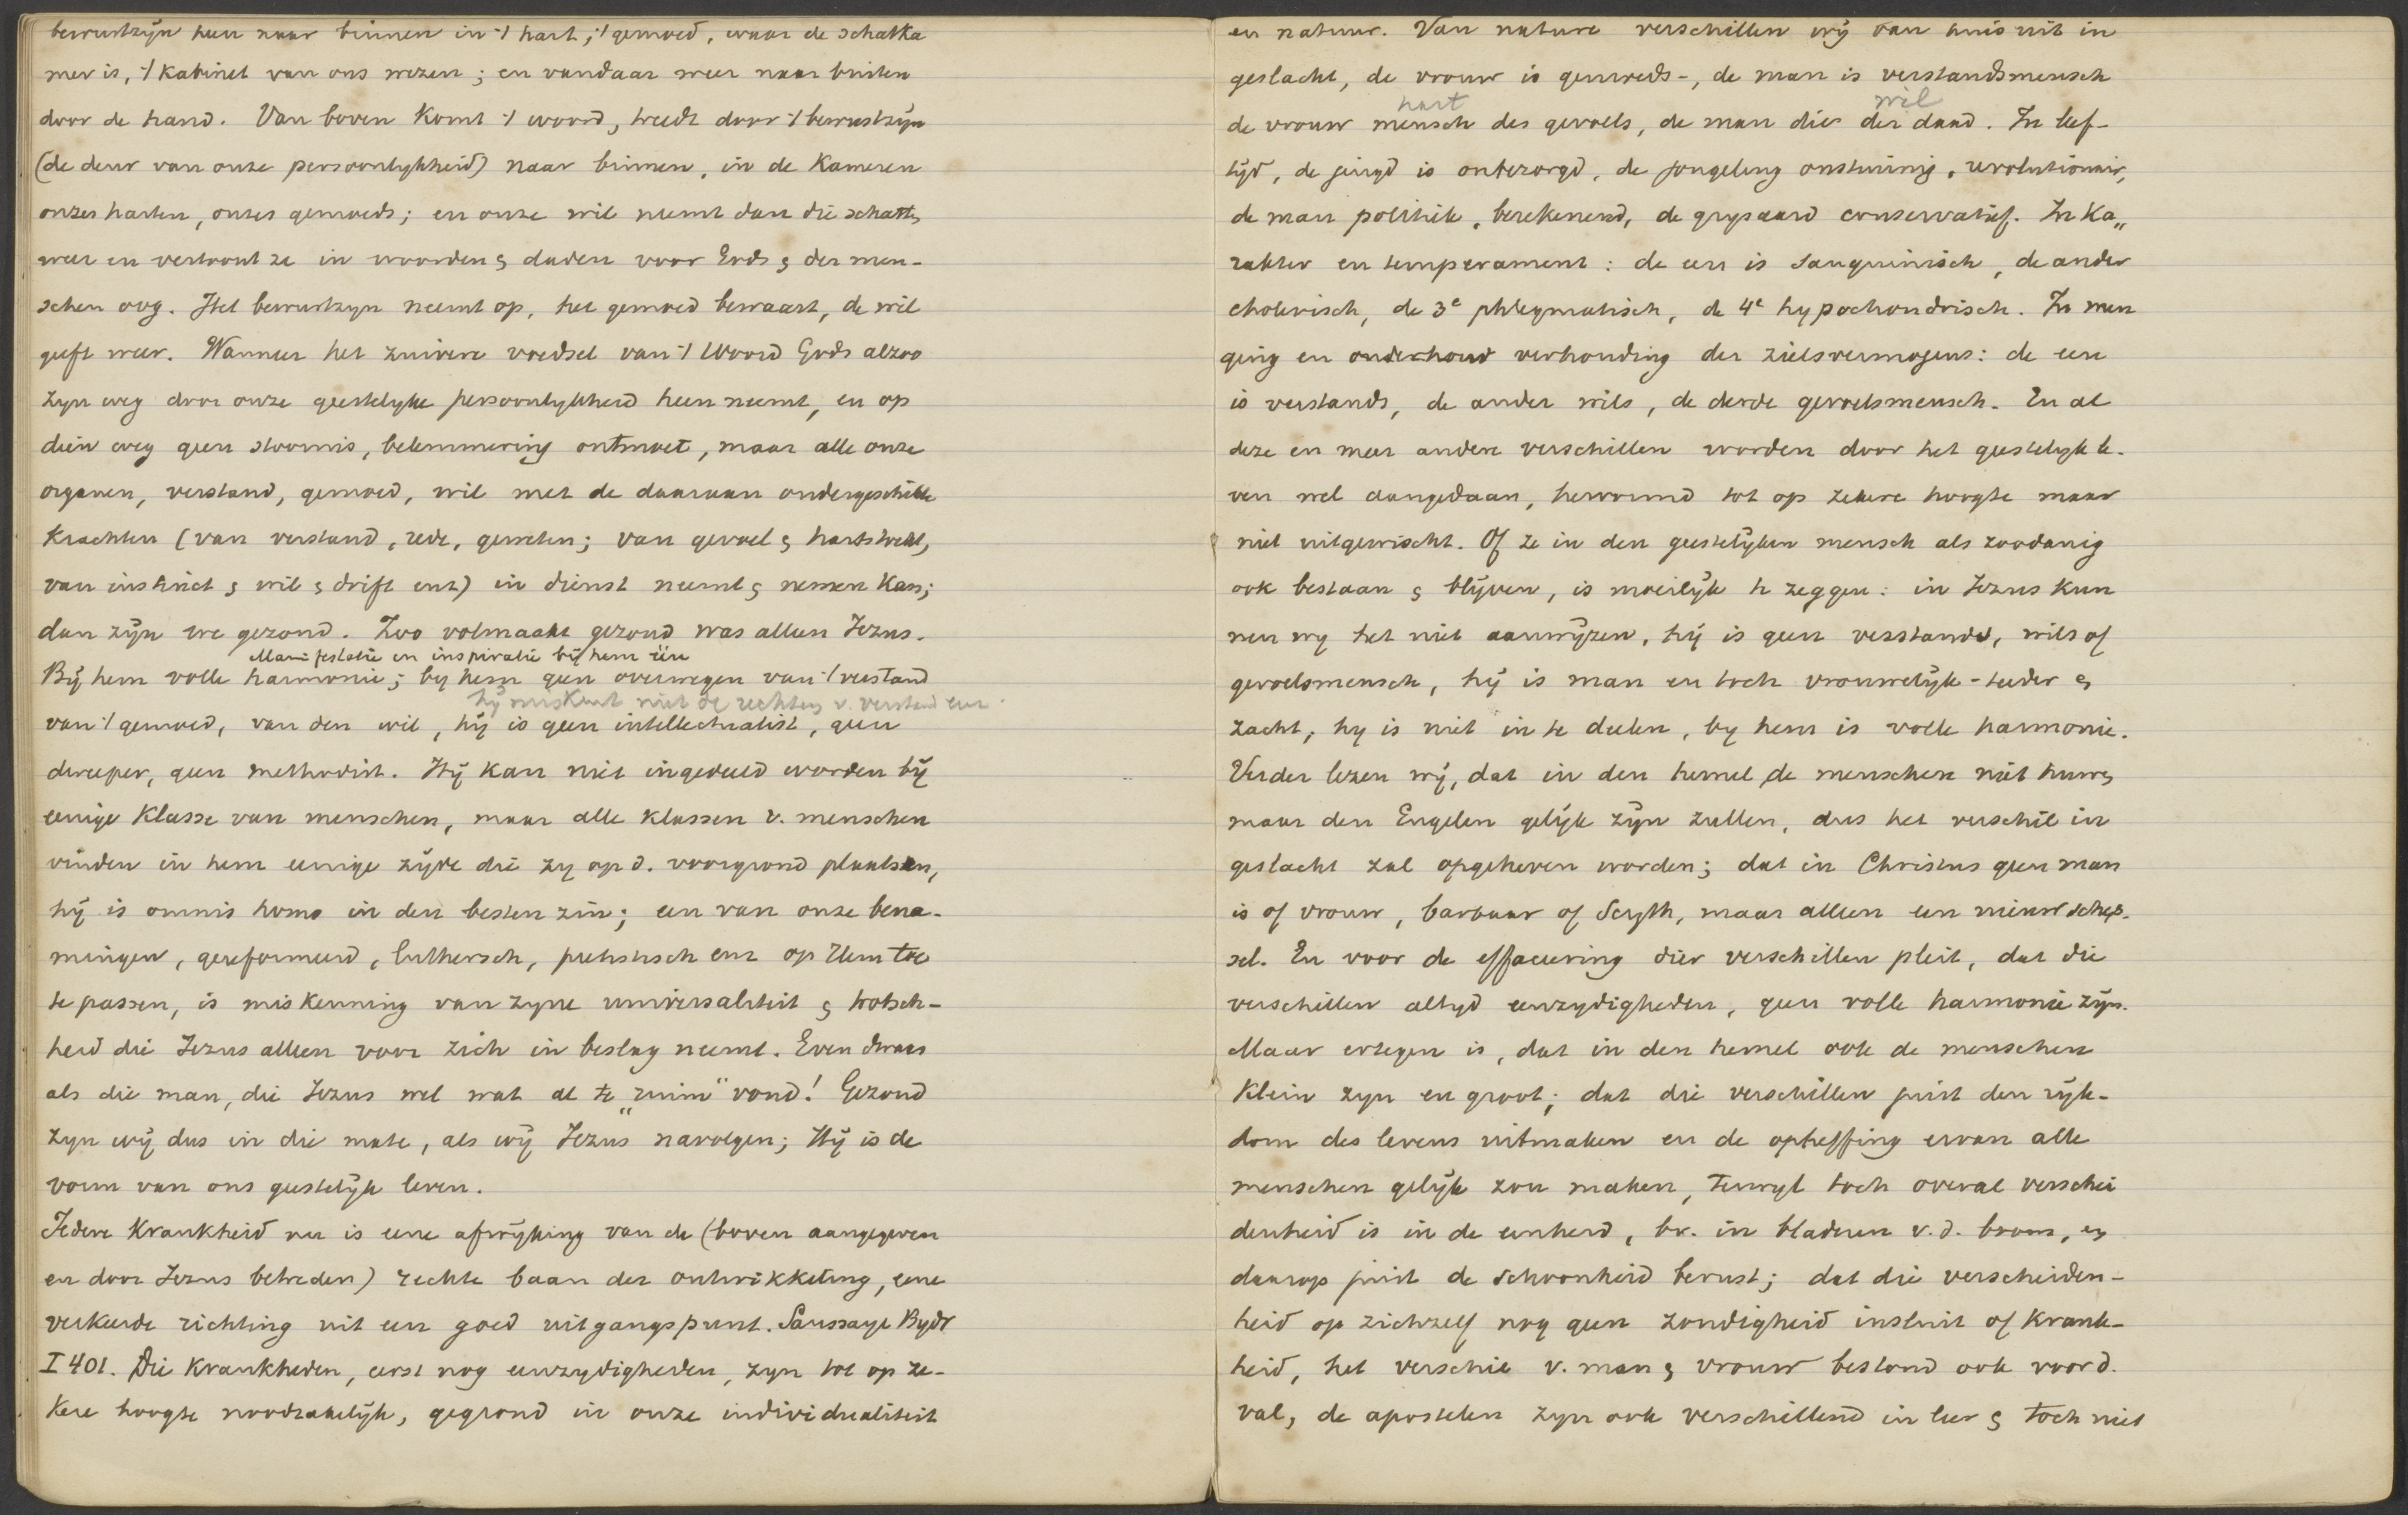 bewustzijn heen naar binnen in 't hart, 't gemoed, waar de schatka
mer is, 't kabinet van ons wezen; en vandaar weer naar buiten
door de hand. Van boven komt 't woord, treedt door 't bewustzijn
(de deur van onze persoonlykheid) naar binnen, in de Kameren
onzes harten, onzes gemoeds; en onze wil neemt dan die schatten
weer en vertoont ze in woorden & daden voor Gods & der men-
schen oog. Het bewustzyn neemt op, het gemoed bewaart, de wil
geeft weer. Wanneer het zuivere voedsel van 't Woord Gods alzoo
zyn weg door onze geestelyke persoonlykheid heen neemt, en op
dien weg geen stoornis, belemmering ontmoet, maar alle onze
organen, verstand, gemoed, wil met de daaraan ondergeschikte
Krachten (van verstand, rede, geweten; van gevoel & hartstocht,
van instinct & wil & drift enz) in dienst neemt & nemen kan;
dan zijn we gezond. Zoo volmaakt gezond was alleen Jezus.
Manifestatie en inspiratie bij hem één
Bij hem volle harmonie; by hem geen overwegen van 't verstand
hij miskent niet de rechten v. verstand enz.
van 't gemoed, van den wil, hij is geen intellectualist, geen
dweeper, geen methodist. Hij kan niet ingedeeld worden bij
eenige Klasse van menschen, maar alle klassen v. menschen
vinden in hem eenige zijde die zy op d. voorgrond plaatsen,
hij is omnis homo in den besten zin; een van onze bena-
mingen, gereformeerd, luthersch, piëtistisch enz op Hem toe
te passen, is miskenning van zyne universaliteit & trotsch-
heid die Jezus alleen voor zich in beslag neemt. Even dwaas
als die man, die Jezus wel wat al te „ruim" vond! Gezond
zyn wij dus in die mate, als wij Jezus navolgen; Hij is de
vorm van ons geestelijk leven.
Iedere Krankheid nu is eene afwijking van de (boven aangegeven
en door Jezus betreden) rechte baan der ontwikkeling, eene
verkeerde richting uit een goed uitgangspunt. Saussaye Bydr
I 401. Die Krankheden, eerst nog eenzydigheden, zyn tot op ze-
kere hoogte noodzakelijk, gegrond in onze individualiteit
en natuur. Van nature verschillen wij van huis uit in
geslacht, de vrouw is gemoeds-, de man is verstandsmensch
hart wil
de vrouw mensch des gevoels, de man die der daad. In leef-
tijd, de jeugd is onbezorgd, de jongeling onstuimig, revolutionair,
de man politiek, berekenend, de grysaard conservatief. In Ka„
rakter en temperament: de een is sanguinisch, de ander
cholerisch, de 3e phlegmatisch, de 4e hypochondrisch. In men
ging en onderhoud verhouding der zielsvermogens: de een
is verstands, de ander wils, de derde gevoelsmensch. En al
deze en meer andere verschillen worden door het geestelijk le-
ven wel aangedaan, hervormd tot op zekere hoogte maar
niet uitgewischt. Of ze in den geestelijken mensch als zoodanig
ook bestaan & blijven, is moeilijk te zeggen: in Jezus kun
nen wy het niet aanwijzen, hij is geen verstands, wils of
gevoelsmensch, hij is man en toch vrouwelijk-teeder &
zacht, hy is niet in te deelen, by hem is volle harmonie.
Verder lezen wij, dat in den hemel de menschen niet huwen
maar den Engelen gelijk zijn zullen, dus het verschil in
geslacht zal opgeheven worden; dat in Christus geen man
is of vrouw, barbaar of Scyth, maar alleen een nieuw schep-
sel. En voor de effaceering dier verschillen pleit, dat die
verschillen altyd eenzydigheden, geen volle harmonie zijn.
Maar ertegen is, dat in den hemel ook de menschen
Klein zyn en groot; dat die verschillen juist den rijk-
dom des levens uitmaken en de opheffing ervan alle
menschen gelijk zou maken, terwyl toch overal verschei
denheid is in de eenheid, bv. in bladeren v.d. boom, en
daarop juist de schoonheid berust; dat die verscheiden-
heid op zichzelf nog geen zondigheid insluit of Krank-
heid, het verschil v. man & vrouw bestond ook voor d.
val, de apostelen zyn ook verschillend in leer & toch niet